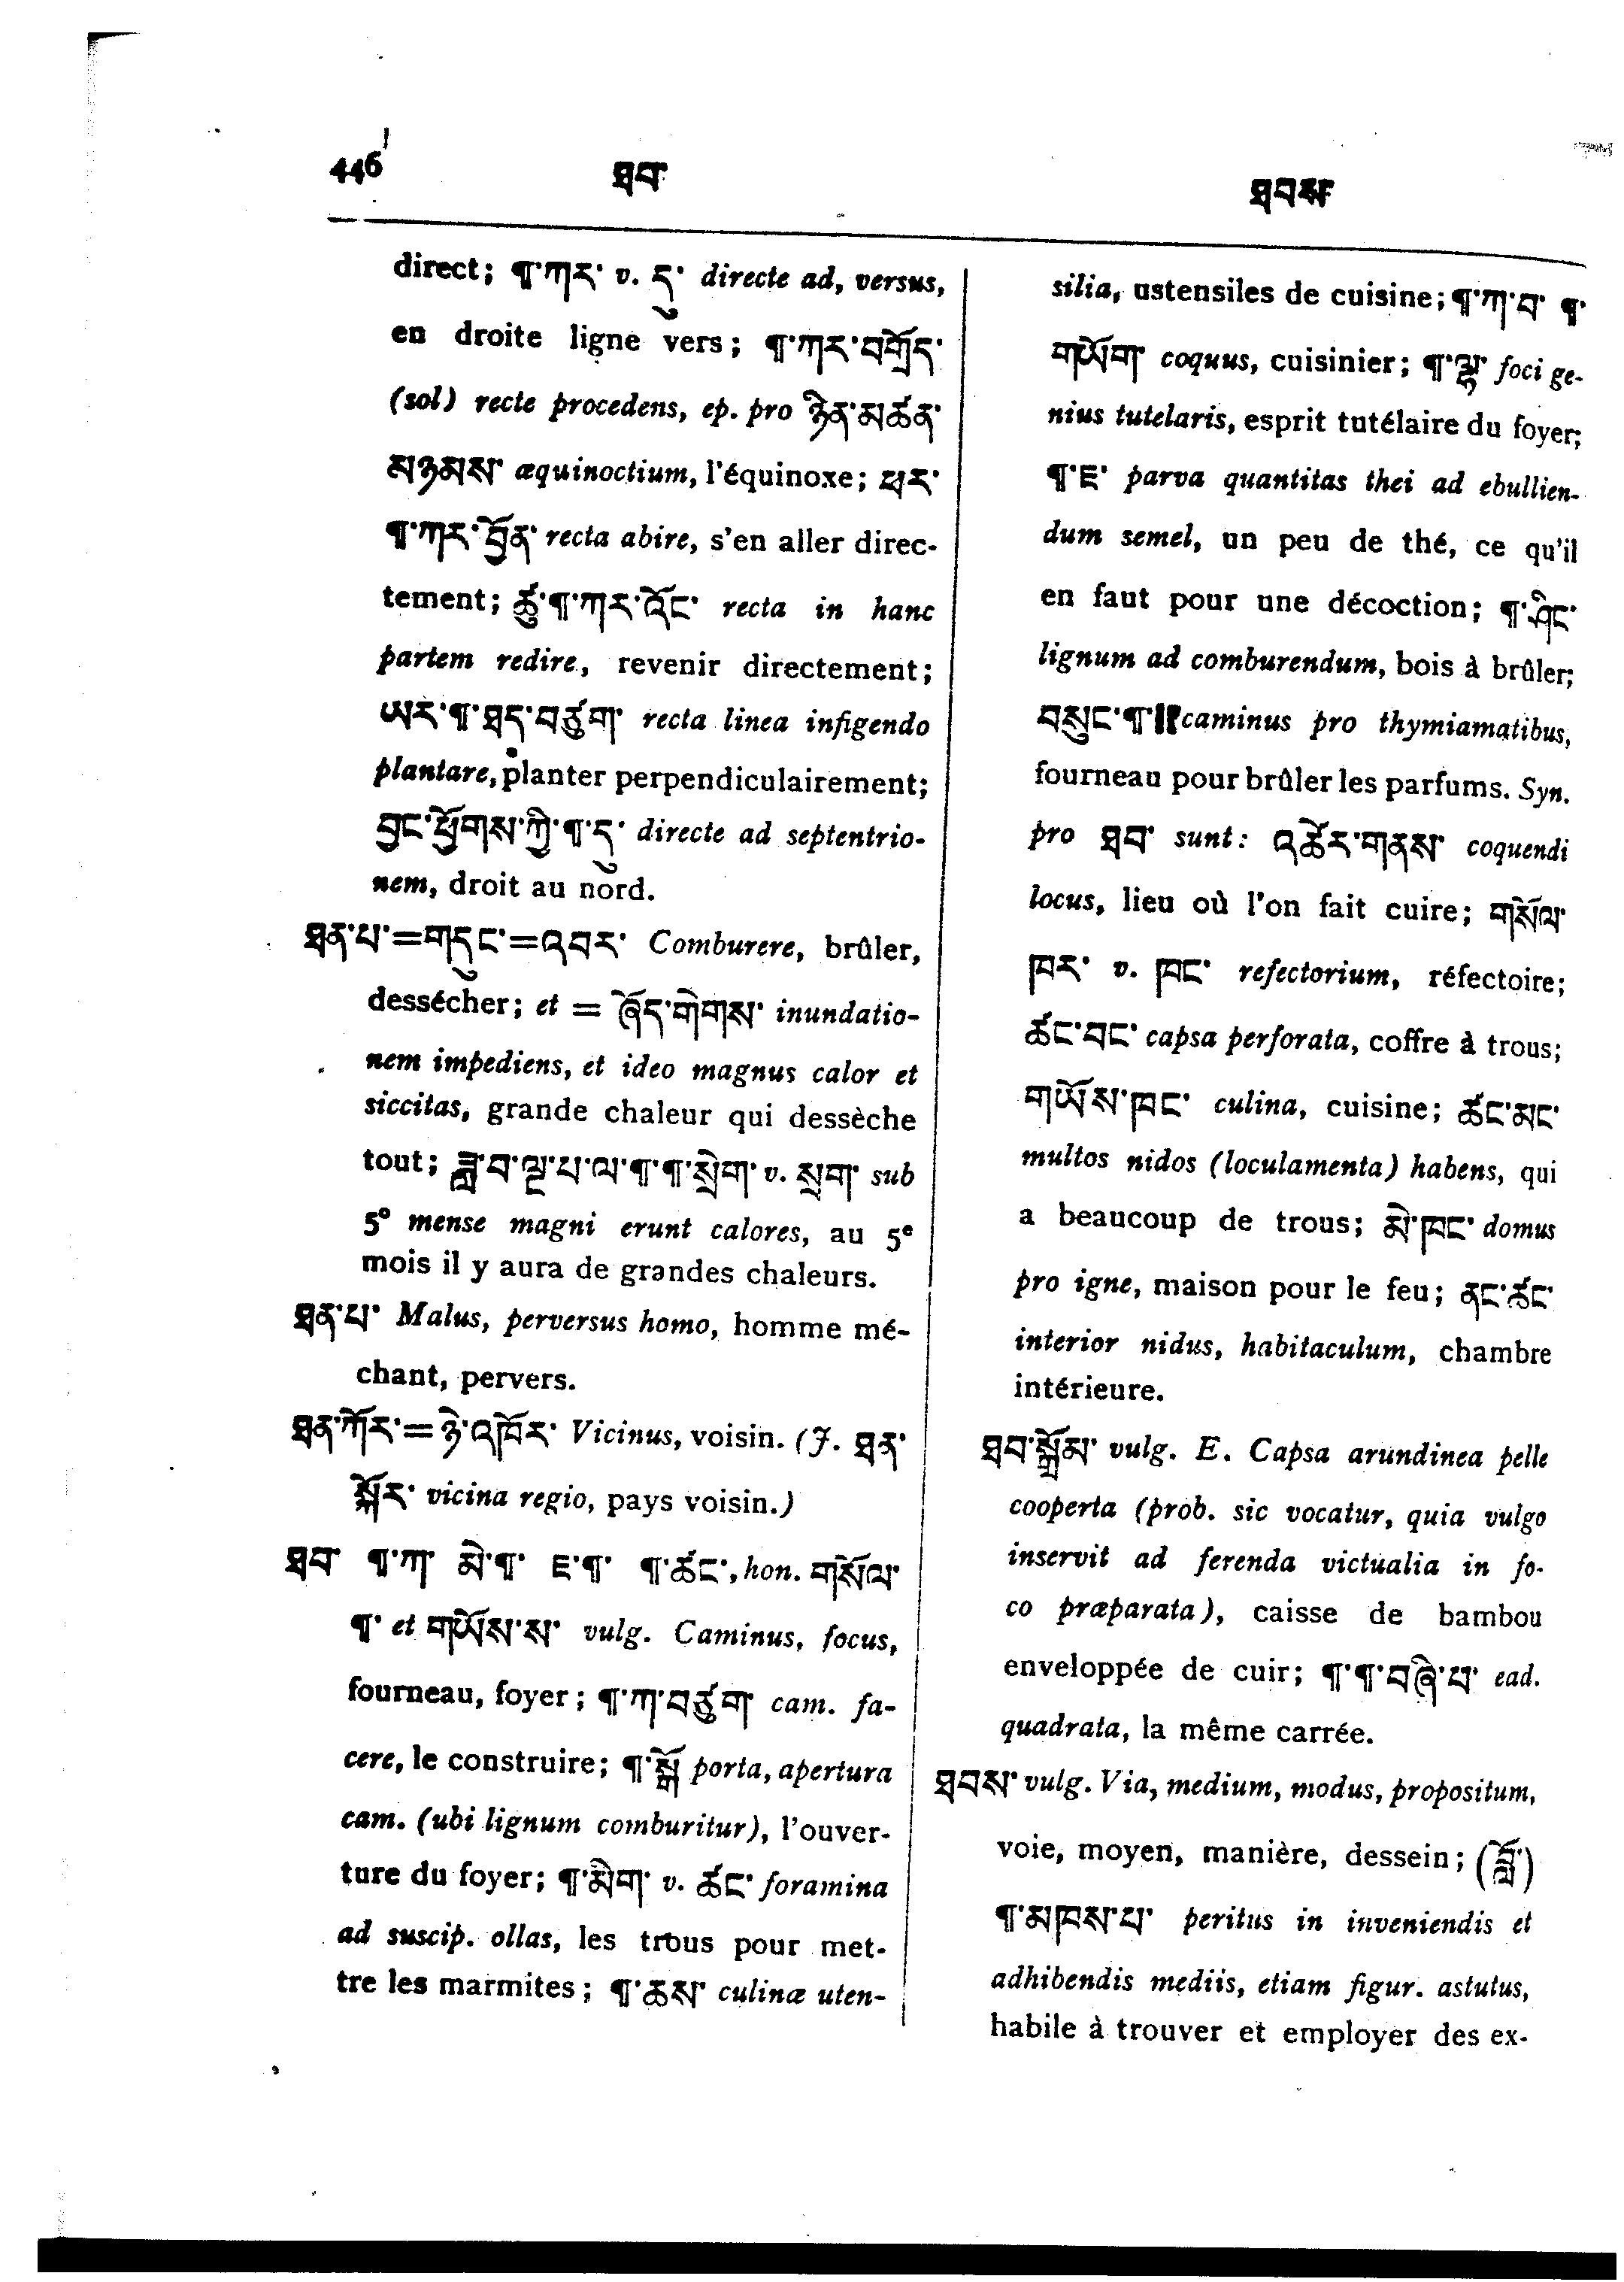 446 ཐབ་ ཐབས་
direct; ¶་ཀར་ v. དུ་ directe ad, versus,
en droite ligne vers; ¶་ཀར་བགྲོད་
(sol) recte procedens, ep. pro ཉིན་མཚན་
མཉམས་ æquinoctium, l'équinoxe; ཕར་
¶་ཀར་བྱོན་ recta abire, s'en aller direc-
tement; ཚུ་¶་ཀར་འོང་ recta in hanc
partem redire, revenir directement;
ཡར་¶་ཐད་བཙུག་ recta linea infigendo
plantare, planter perpendiculairement;
བྱང་ཕྱོགས་ཀྱི་¶་དུ་ directe ad septentrio-
nem, droit au nord.
ཐན་པ་=གདུང་=འབར་ Comburere, brûler,
dessécher; et = ཞོད་གེགས་ inundatio-
nem impediens, et ideo magnus calor et
siccitas, grande chaleur qui dessèche
tout; ཟླ་བ་ལྔ་པ་ལ་¶་¶་སྲེག་ v. སྲག་ sub
5º mense magni erunt calores, au 5e
mois il y aura de grandes chaleurs.
ཐན་པ་ Malus, perversus homo, homme mé-
chant, pervers.
ཐན་ཀོར་=ཉེ་འཁོར་ Vicinus, voisin. (J. ཐན་
སྐོར་ vicina regio, pays voisin.)
ཐབ་ ¶་ཀ་ མེ་¶་ ཇ་¶་ ¶་ཚང་, hon. གསོལ་
¶་ et གཡོས་ས་ vulg. Caminus, focus,
fourneau, foyer; ¶་ཀ་བཙུག་ cam. fa-
cere, le construire; ¶་སྒོ་ porta, apertura
cam. (ubi lignum comburitur), l'ouver-
ture du foyer; ¶་མིག་ v. ཚང་ foramina
ad suscip. ollas, les trous pour met-
tre les marmites; ¶་ཆས་ culinæ uten-
silia, ustensiles de cuisine; ¶་ཀ་བ་ ¶་
གཡོག་ coquus, cuisinier; ¶་ལྷ་ foci ge-
nius tutelaris, esprit tutélaire du foyer;
¶་ཇ་ parva quantitas thei ad ebullien-
dum semel, un peu de thé, ce qu'il
en faut pour une décoction; ¶་ཤིང་
lignum ad comburendum, bois à brûler;
བསུང་¶་ caminus pro thymiamatibus,
fourneau pour brûler les parfums. Syn.
pro ཐབ་ sunt: འཚེར་གནས་ coquendi
locus, lieu où l'on fait cuire; གསོལ་
ཁར་ v. ཁང་ refectorium, réfectoire;
ཚང་བང་ capsa perforata, coffre à trous;
གཡོས་ཁང་ culina, cuisine; ཚང་མང་
multos nidos (loculamenta) habens, qui
a beaucoup de trous; མེ་ཁང་ domus
pro igne, maison pour le feu; ནང་ཚང་
interior nidus, habitaculum, chambre
intérieure.
ཐབ་སྒྲོམ་ vulg. E. Capsa arundinea pelle
cooperta (prob. sic vocatur, quia vulgo
inservit ad ferenda victualia in fo-
co præparata), caisse de bambou
enveloppée de cuir; ¶་¶་བཞི་པ་ ead.
quadrata, la même carrée.
ཐབས་ vulg. Via, medium, modus, propositum,
voie, moyen, manière, dessein; (བློ་)
¶་མཁས་པ་ peritus in inveniendis et
adhibendis mediis, etiam figur. astutus,
habile à trouver et employer des ex-